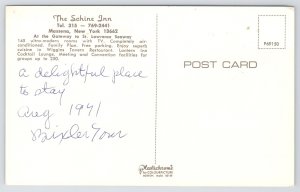 The Schine Inn
Tel. 315 — 769-2441
Massena, New York 13662
At the Gateway to St. Lawrence Seaway
160 ultra-modern rooms with TV. Completely air-
conditioned. Family Plan. Free parking. Enjoy superb
cuisine in Wiggins Tavern Restaurant. Lantern Lea
Cocktail Lounge. Meeting and Convention facilities for
groups up to 250.
P69150
POST CARD
a delightful place
to stay
Aug 1971
Tour
Plastichrome